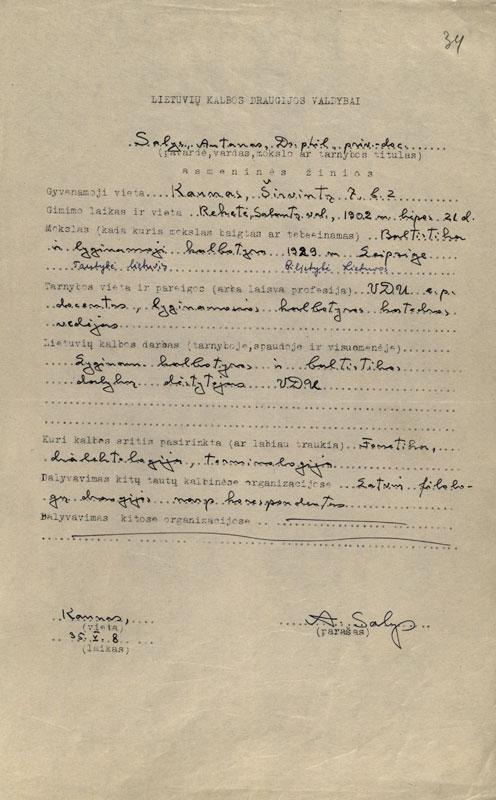 34
LIETUVIŲ KALBOS DRAUGIJOS VALDYBAI
Salys, Antanas, Dr. phil., priv.-doc.
(pavardė, vardas, mokslo ar tarnybos titulas)
asmeninės žinios
Gyvenamoji vieta Kaunas, Širvintų 7. b. 2
Gimimo laikas ir vieta Reketė, Salantų val., 1902 m. liepos 21 d.
Mokslas (kada kuris mokslas baigtas ar tebeinamas) Baltistika
ir lyginamoji kalbotyra 1929 m. Leipzige
Tautybė lietuvis Pilietybė Lietuvos
Tarnybos vieta ir pareigos (arba laisva profesija) VDU e. p.
docentas, lyginamosios kalbotyros katedros
vedėjas
Lietuvių kalbos darbas (tarnyboje, spaudoje ir visuomenėje)
Lyginam. kalbotyros ir baltistikos
dalykų dėstytojas VDU
Kuri kalbos sritis pasirinkta (ar labiau traukia) Fonetika,
dialektologija, terminologija
Dalyvavimas kitų tautų kalbinėse organizacijose Latvių filolo-
gų draugijos narys korespondentas
Dalyvavimas kitose organizacijose
Kaunas,
(vieta)
35. V. 8.
(laikas)
A. Salys
(parašas)